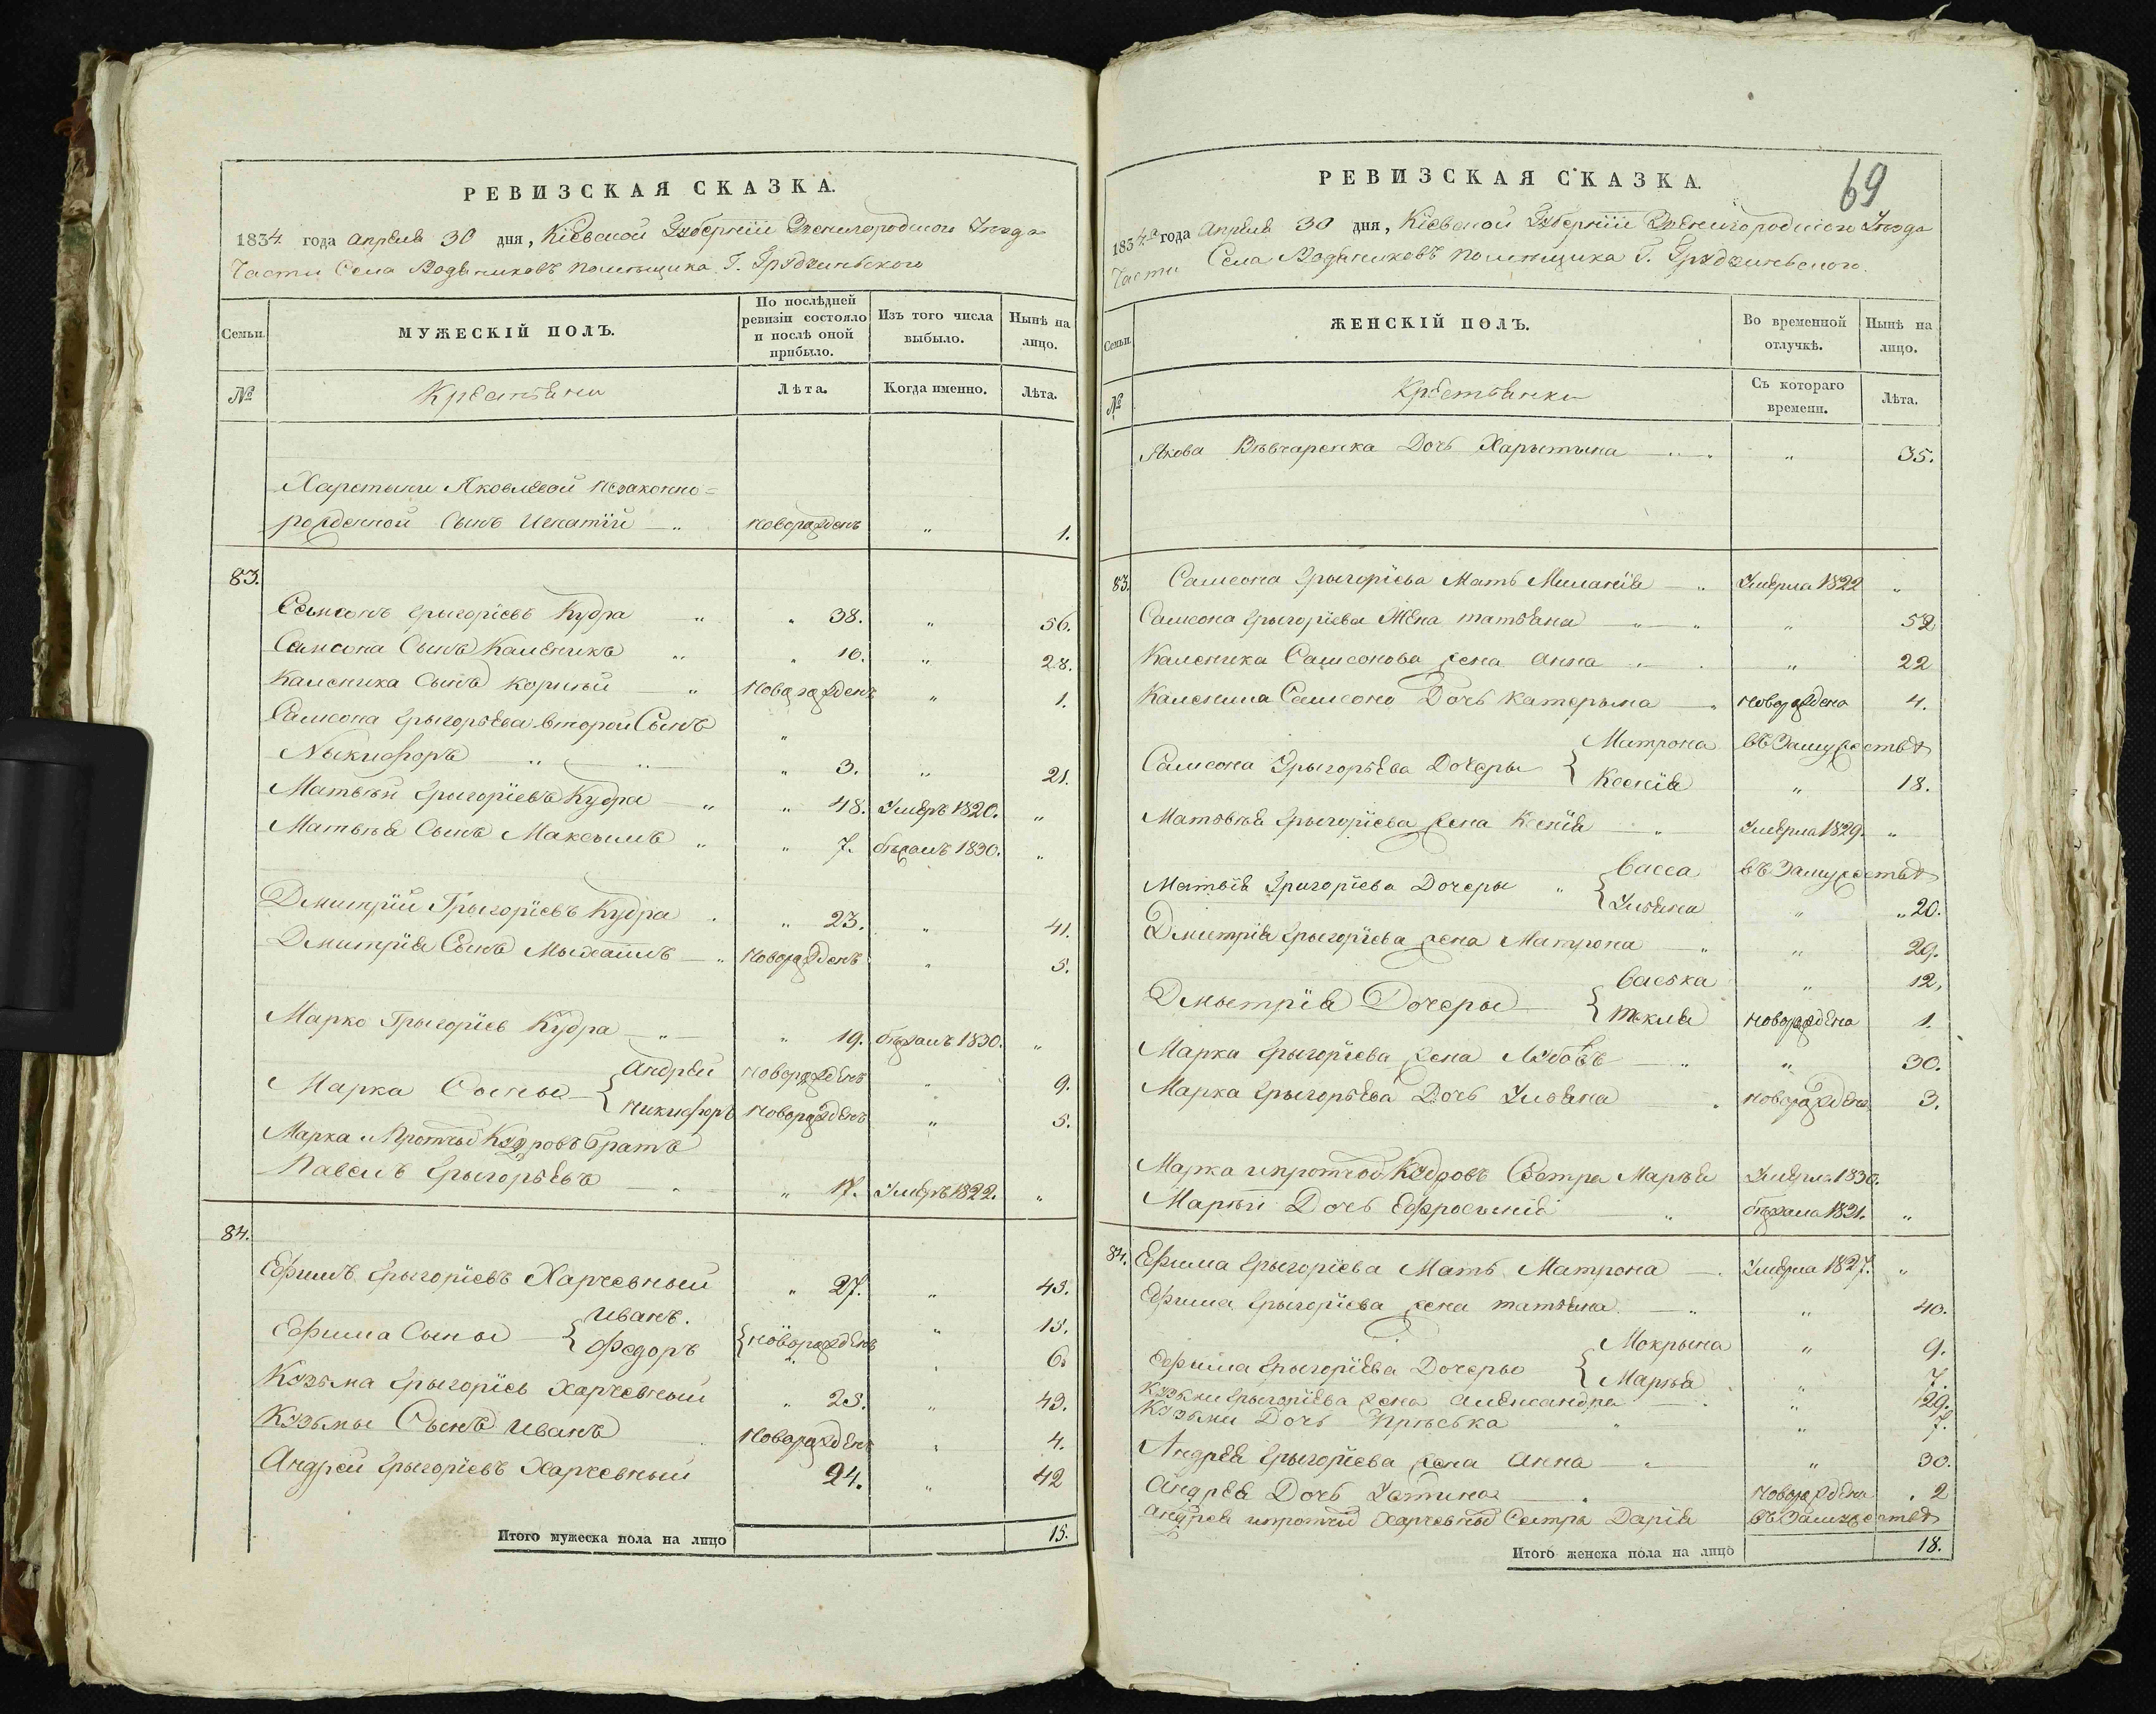 РЕВИЗСКАЯ СКАЗКА.
1834 года Апреля 30 дня, Кіевской Губерніи Звенигородского Уезда
Части Села Водяниковъ помещика Г.
Семьи.
МУЖЕСКІЙ ПОЛЪ.
По послѣдней ревизіи состояло и послѣ оной прибыло.
Изъ того числа выбыло.
Нынѣ на лицо.
№
Крестьяни
Лѣта.
Когда именно.
Лѣта.
Харетыни Яковлевой незаконно=
рожденной Сынъ Игнатій новорожденъ " 1.
83.
Самсонъ Грыгоріевъ Кудра " " 38. " 56.
Самсона Сынъ Каленикъ " " 10. " 28.
Каленика Сынъ Корнѣй " новорожденъ " 1.
Самсона Грыгорьева второй Сынъ "
Ныкифоръ " " " 3. " 21.
Матвѣй Грыгоріевъ Кудра " " 48. Умеръ 1820. "
Матвѣя Сынъ Максымъ " " 7. бѣжалъ 1830. "
Дмитрій Грыгоріевъ Кудра " 23. " 41.
Дмитрія Сынъ Мыхаилъ " новорожденъ " 5.
Марко Грыгоріев Кудра " " 19. бѣжалъ 1830. "
Марка Сыны { Андрей новорожденъ " 9.
Никифоръ новорожденъ " 5.
Марка и Протчых Кудровъ братъ
Павелъ Грыгорьевъ " " 17. Умеръ 1822. "
84.
Ефимъ Грыгоріевъ Харчевный " 27. " 45.
Ефима Сыны { Иванъ. { новорожденъ " 15.
Федоръ " " 6.
Кузьма Грыгоріев Харчевный " 25. " 43.
Кузьмы Сынъ Иванъ новорожденъ " 4.
Андрей Грыгоріевъ Харчевный 24. " 42
Итого мужеска пола на лицо 15.
69
РЕВИЗСКАЯ СКАЗКА.
1834го года Апреля 30 дня, Кіевской Губерніи Звенигородского Уезда
Части Села Водяниковъ помещика Г.
Семьи.
ЖЕНСКІЙ ПОЛЪ.
Во временной отлучкѣ.
Нынѣ на лицо.
№
Крестьянки
Съ котораго времени.
Лѣта.
Якова Вѣвчаренка Дочь Харытына " " 35.
83. Самсона Грыгоріева Мать Миланія " Умерла 1822 "
Самсона Грыгоріева Жена татьяна " " " 52
Каленика Самсонова жена Анна " " 22
Каленика Самсоно Дочь Катерына " новорождена 4.
Самсона Грыгорьева Дочеры { Матрона въ Замужествѣ
Ксенія " 18.
Матвѣя Грыгоріева жена Ксенія " Умерла 1829. "
Матвія Григоріева Дочеры " { Васса въ Замужествѣ
Ульяна " " 20.
Дмитрія Грыгоріева жена Матрона " " 29.
Дмытрія Дочеры { Васька " 12.
Текля новорождена 1.
Марка Грыгоріева жена Любовь " " 30.
Марка Грыгорьева Дочь Ульяна " новорождена 3.
Марка и протчых Кудровъ Сестра Марѣя Умерла 1830.
Марѣи Дочь Ефросынія " бѣжала 1831. "
84. Ефима Грыгоріева Мать Матрона " Умерла 1827. "
Ефима Грыгоріева жена татьяна " " 40.
Ефима Грыгоріева Дочеры { Мокрына " 9.
Марѣя " 7.
Кузьми Грыгоріева жена Александра " " 29.
Кузьми Дочь Прыська " " 7.
Андрея Грыгоріева жена Анна " " 30.
Андрея Дочь Устина новорождена " 2
Андрея и протчых Харчевных Сестра Дарія въ Замужествѣ
Итого женска пола на лицо 18.